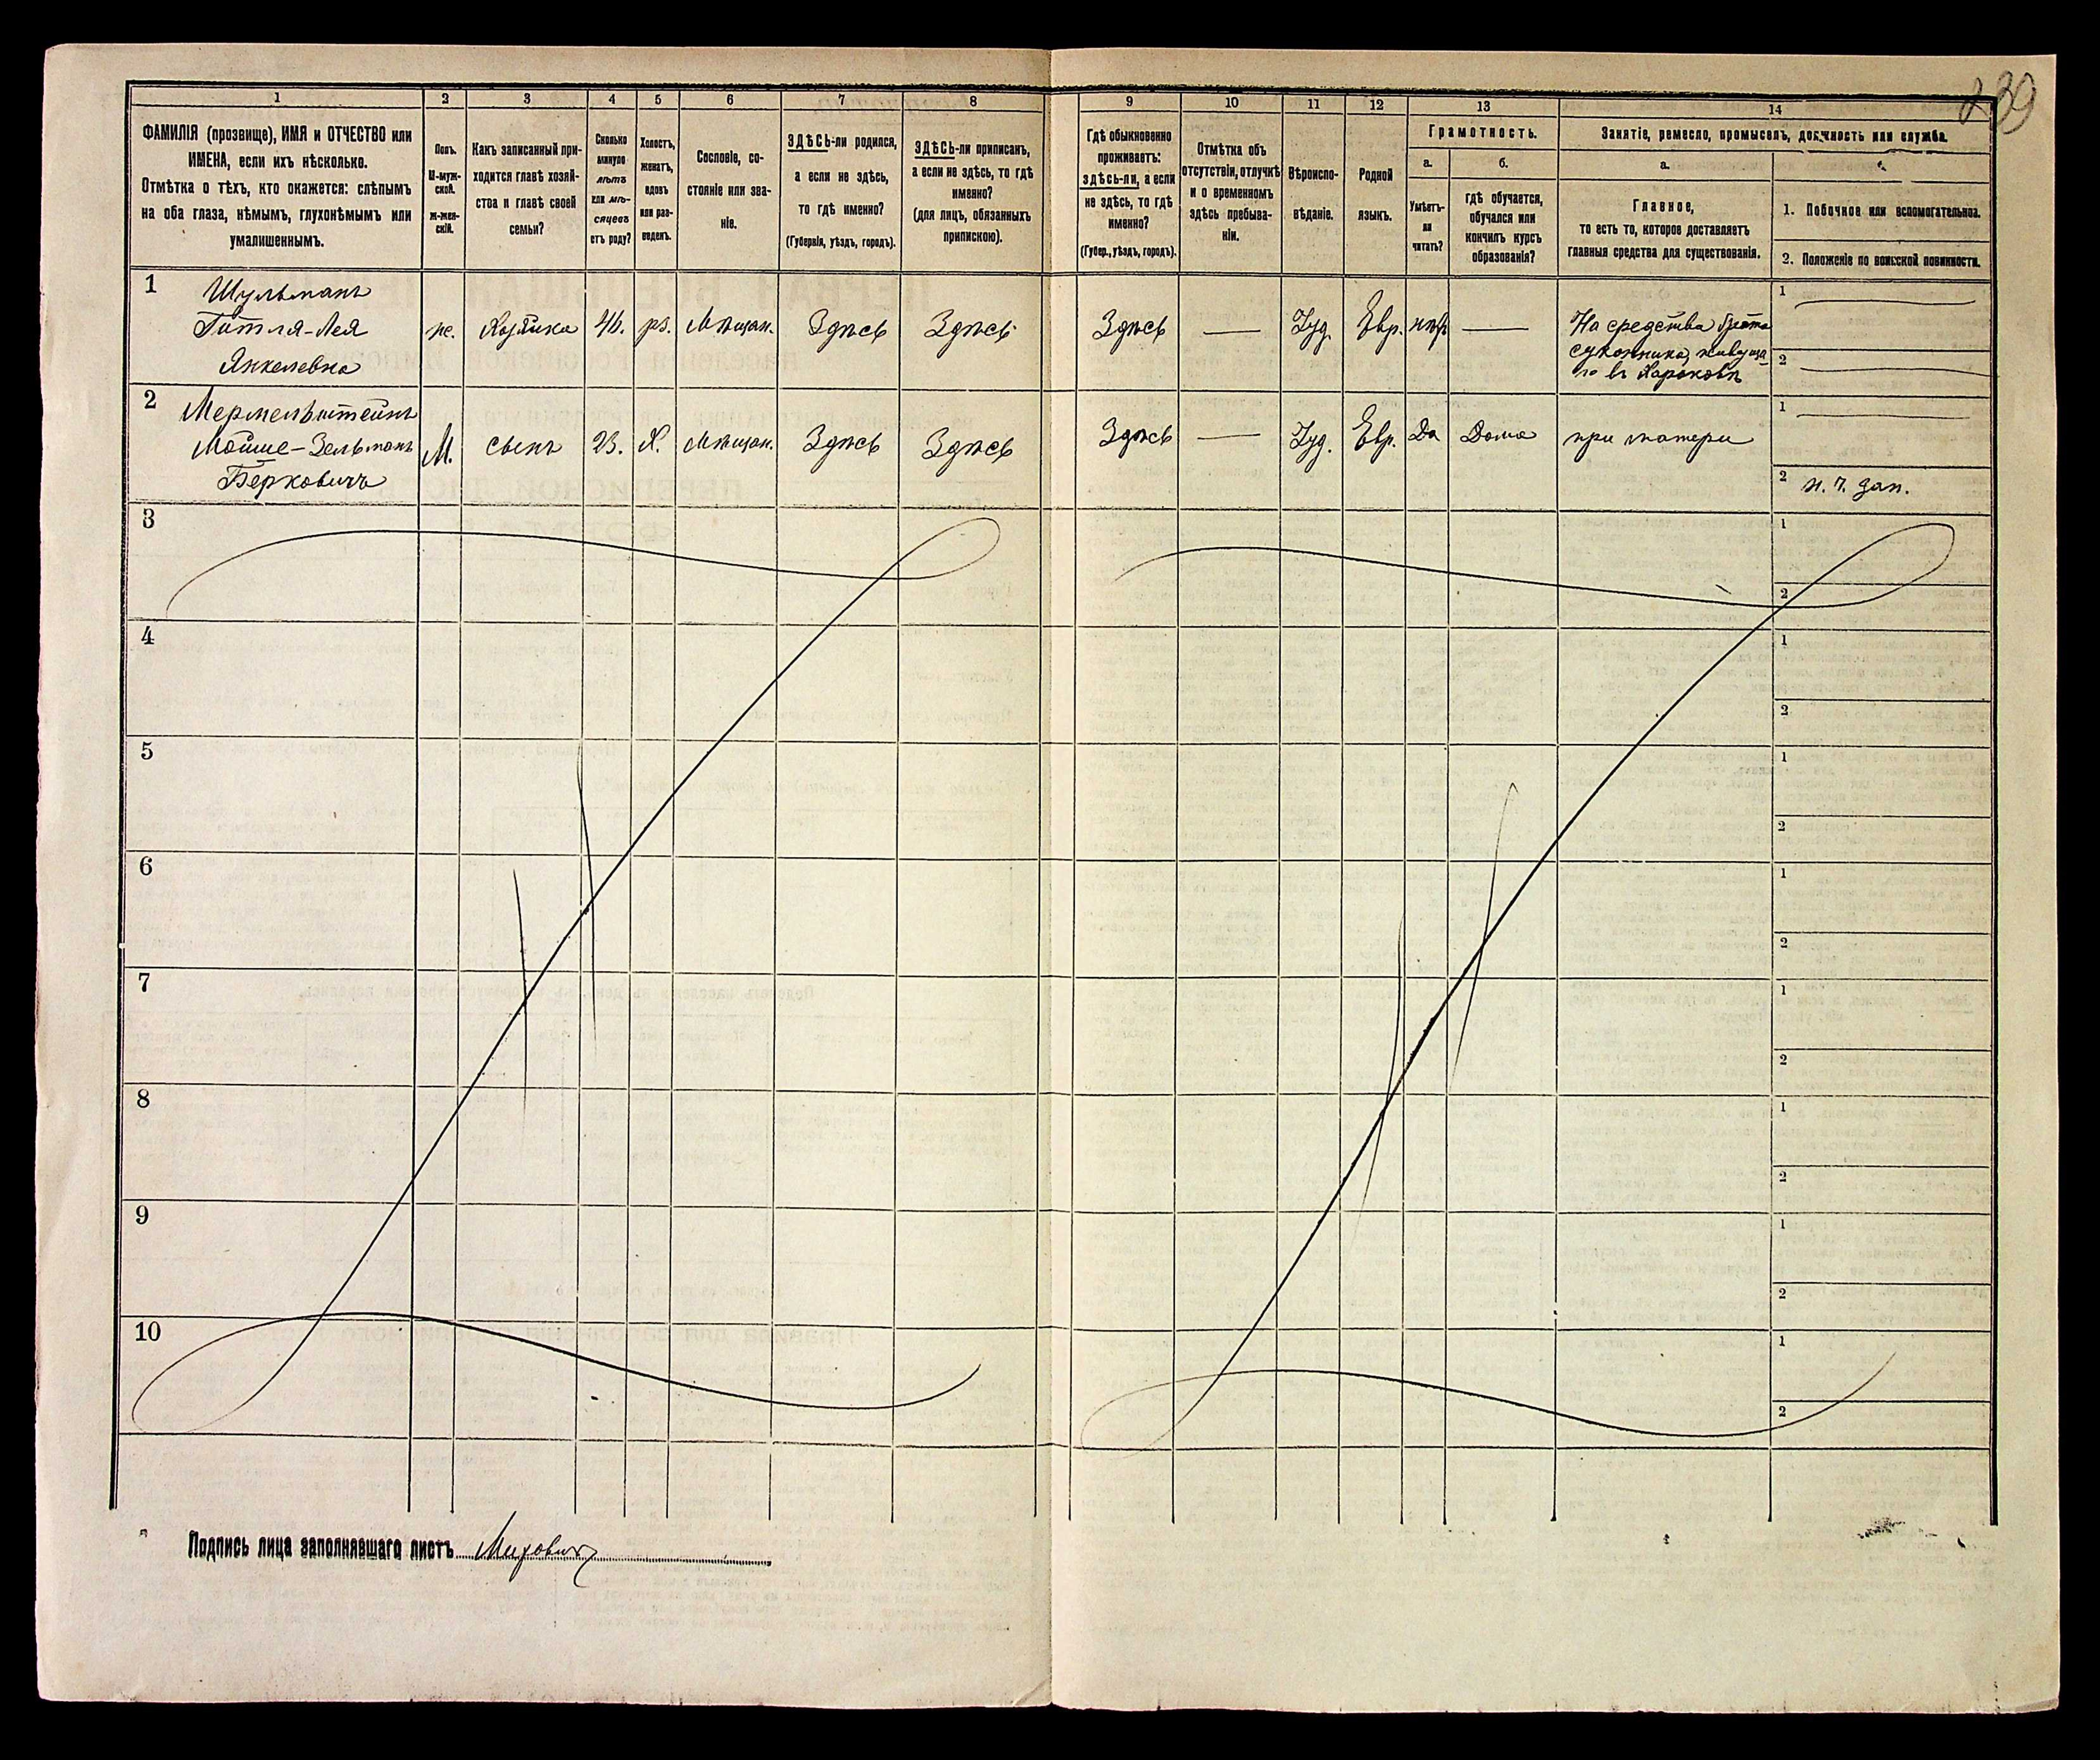 239
1
2
3
4
5
6
7
8
9
10
11
12
13
14
ФАМИЛІЯ (прозвище), ИМЯ и ОТЧЕСТВО или
ИМЕНА, если ихъ нѣсколько.
Отмѣтка о тѣхъ, кто окажется: слѣпымъ
на оба глаза, нѣмымъ, глухонѣмымъ или
умалишеннымъ.
Полъ.
М-муж-
ской.
Ж-жен-
скій.
Какъ записанный при-
ходится главѣ хозяй-
ства и главѣ своей
семьи?
Сколько
минуло
лѣтъ
или мѣ-
сяцевъ
отъ роду?
Холостъ,
женатъ,
вдовъ
или раз-
веденъ.
Сословіе, со-
стояніе или зва-
ніе.
ЗДѢСЬ-ли родился,
а если не здѣсь,
то гдѣ именно?
(Губернія, уѣздъ, городъ).
ЗДѢСЬ-ли приписанъ,
а если не здѣсь, то гдѣ
именно?
(для лицъ, обязанныхъ
припискою).
Гдѣ обыкновенно
проживаетъ:
здѣсь-ли, а если
не здѣсь, то гдѣ
именно?
(Губер., уѣздъ, городъ).
Отмѣтка объ
отсутствіи, отлучкѣ
и о временномъ
здѣсь пребыва-
ніи.
Вѣроиспо-
вѣданіе.
Родной
языкъ.
Грамотность.
а.
б.
Умѣетъ-
ли
читать?
гдѣ обучается,
обучался или
кончилъ курсъ
образованія?
Занятіе, ремесло, промыселъ, должность или служба.
а.
Главное,
то есть то, которое доставляетъ
главныя средства для существованія.
1. Побочное или вспомогательное.
2. Положеніе по воинской повинности.
1
Шульманъ
Гитля-Лея
Янкелевна
ж.
Хозяйка
46.
рз.
Мѣщан.
Здѣсь
Здѣсь
Здѣсь
—
Іуд.
Евр.
нѣт
—
На средства брата
суконника, живуща
го въ Харьковѣ
1
2
2
Мермельштейнъ
Мойше-Зельманъ
Берковичъ
М.
сынъ
23.
Х.
Мѣщан.
Здѣсь
Здѣсь
Здѣсь
—
Іуд.
Евр.
Да
Дома
при матери
1
2 н. ч. зап.
3
1
2
4
1
2
5
1
2
6
1
2
7
1
2
8
1
2
9
1
2
10
1
2
Подпись лица заполнявшаго листъ